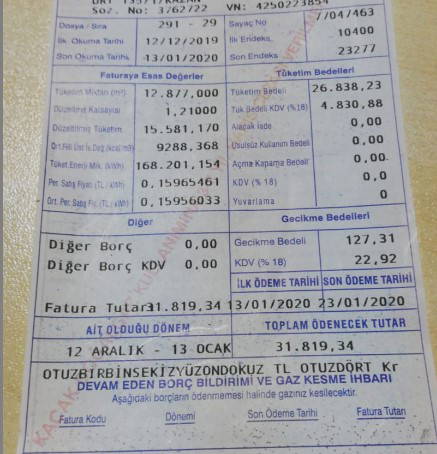 Söz. No: 3762/22 VN: 4250223854
Dosya / Sıra 291 - 29 Sayaç No 7/04/463
İlk Okuma Tarihi 12/12/2019 İlk Endeks 10400
Son Okuma Tarihi 13/01/2020 Son Endeks 23277
Faturaya Esas Değerler Tüketim Bedelleri
Tüketim Miktarı (m³) 12.877,000 Tüketim Bedeli 26.838,23
Düzeltme Katsayısı 1,21000 Tük Bedeli KDV (%18) 4.830,88
Düzeltilmiş Tüketim 15.581,170 Alacak İade 0,00
Ort.Fiili Üst Is.Değ.(kcal/m3) 9288,368 Usulsüz Kullanım Bedeli 0,00
Tüket.Enerji Mik. (kWh) 168.201,154 Açma Kapama Bedeli 0,00
Per. Satış Fiyatı (TL / kWh) 0,15965461 KDV (% 18) 0,0
Ort. Per. Satış Fiy. (TL / kWh) 0,15956033 Yuvarlama 0
Diğer Gecikme Bedelleri
Diğer Borç 0,00 Gecikme Bedeli 127,31
Diğer Borç KDV 0,00 KDV (% 18) 22,92
İLK ÖDEME TARİHİ SON ÖDEME TARİHİ
Fatura Tutarı 31.819,34 13/01/2020 23/01/2020
AİT OLDUĞU DÖNEM TOPLAM ÖDENECEK TUTAR
12 ARALIK - 13 OCAK 31.819,34
OTUZBİRBİNSEKİZYÜZONDOKUZ TL OTUZDÖRT Kr
DEVAM EDEN BORÇ BİLDİRİMİ VE GAZ KESME İHBARI
Aşağıdaki borçların ödenmemesi halinde gazınız kesilecektir.
Fatura Kodu Dönemi Son Ödeme Tarihi Fatura Tutarı